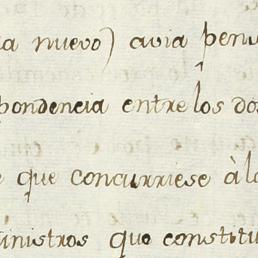 a nuevo) avia pen
pondencia entre los dos
que concurriese à lo
inistros que constitu